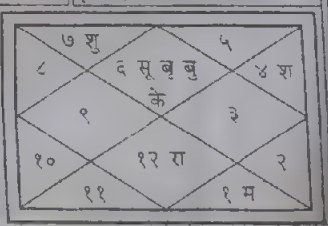 ७ शु ५
८ ६ सू बृ बु ४ श
के
९ ३
१० १२ रा २
११ १ म